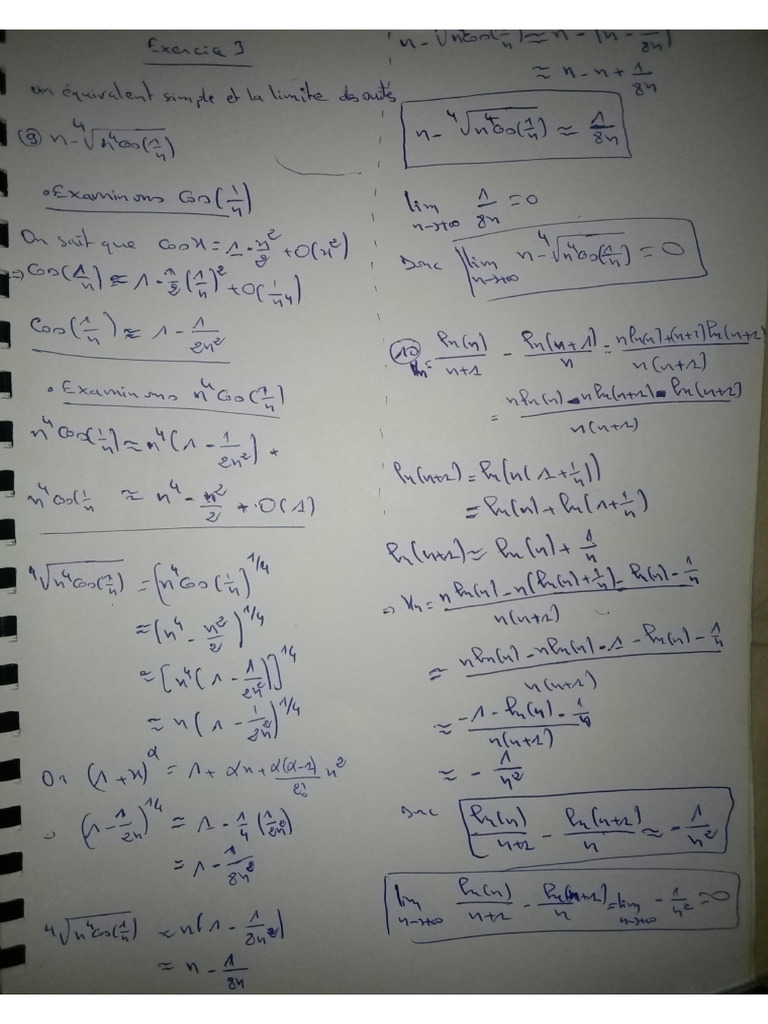 Exercice 3
un équivalent simple et la limite des suites
(9) n - ⁴√(n⁴cos(1/n))
• Examinons cos(1/n)
On sait que cos x = 1 - x²/2 + O(x²)
⇒ cos(1/n) ≈ 1 - 1/2 (1/n)² + O(1/n⁴)
cos(1/n) ≈ 1 - 1/2n²
• Examinons n⁴cos(1/n)
n⁴cos(1/n) ≈ n⁴(1 - 1/2n²)
n⁴cos(1/n ≈ n⁴ - n²/2 + O(1)
⁴√(n⁴cos(1/n)) = (n⁴cos(1/n))^1/4
≈ (n⁴ - n²/2)^1/4
≈ [n⁴(1 - 1/2n²)]^1/4
≈ n(1 - 1/2n²)^1/4
Or (1+x)^α = 1 + αx + α(α-1)/2! x²
⇒ (1 - 1/2n)^1/4 = 1 - 1/4 (1/2n²)
= 1 - 1/8n²
⁴√(n⁴cos(1/n)) ≈ n(1 - 1/8n²)
≈ n - 1/8n
n - ⁴√(n⁴cos(1/n)) ≈ n - (n - 1/8n)
≈ n - n + 1/8n
n - ⁴√(n⁴cos(1/n)) ≈ 1/8n
lim n→+∞ 1/8n = 0
Donc lim n→+∞ n - ⁴√(n⁴cos(1/n)) = 0
(10) Vn = ln(n)/n+1 - ln(n+1)/n = nln(n)+(n+1)ln(n+1)/n(n+1)
= nln(n) - nln(n+1) - ln(n+1)/n(n+1)
ln(n+1) = ln(n(1+1/n))
= ln(n) + ln(1+1/n)
ln(n+1) ≈ ln(n) + 1/n
⇒ Vn = nln(n) - n(ln(n)+1/n) - ln(n) - 1/n/n(n+1)
≈ nln(n) - nln(n) - 1 - ln(n) - 1/n/n(n+1)
≈ -1 - ln(n) - 1/n/n(n+1)
≈ - 1/n²
Donc ln(n)/n+1 - ln(n+1)/n ≈ - 1/n²
lim n→+∞ ln(n)/n+1 - ln(n+1)/n = lim n→+∞ - 1/n² = 0